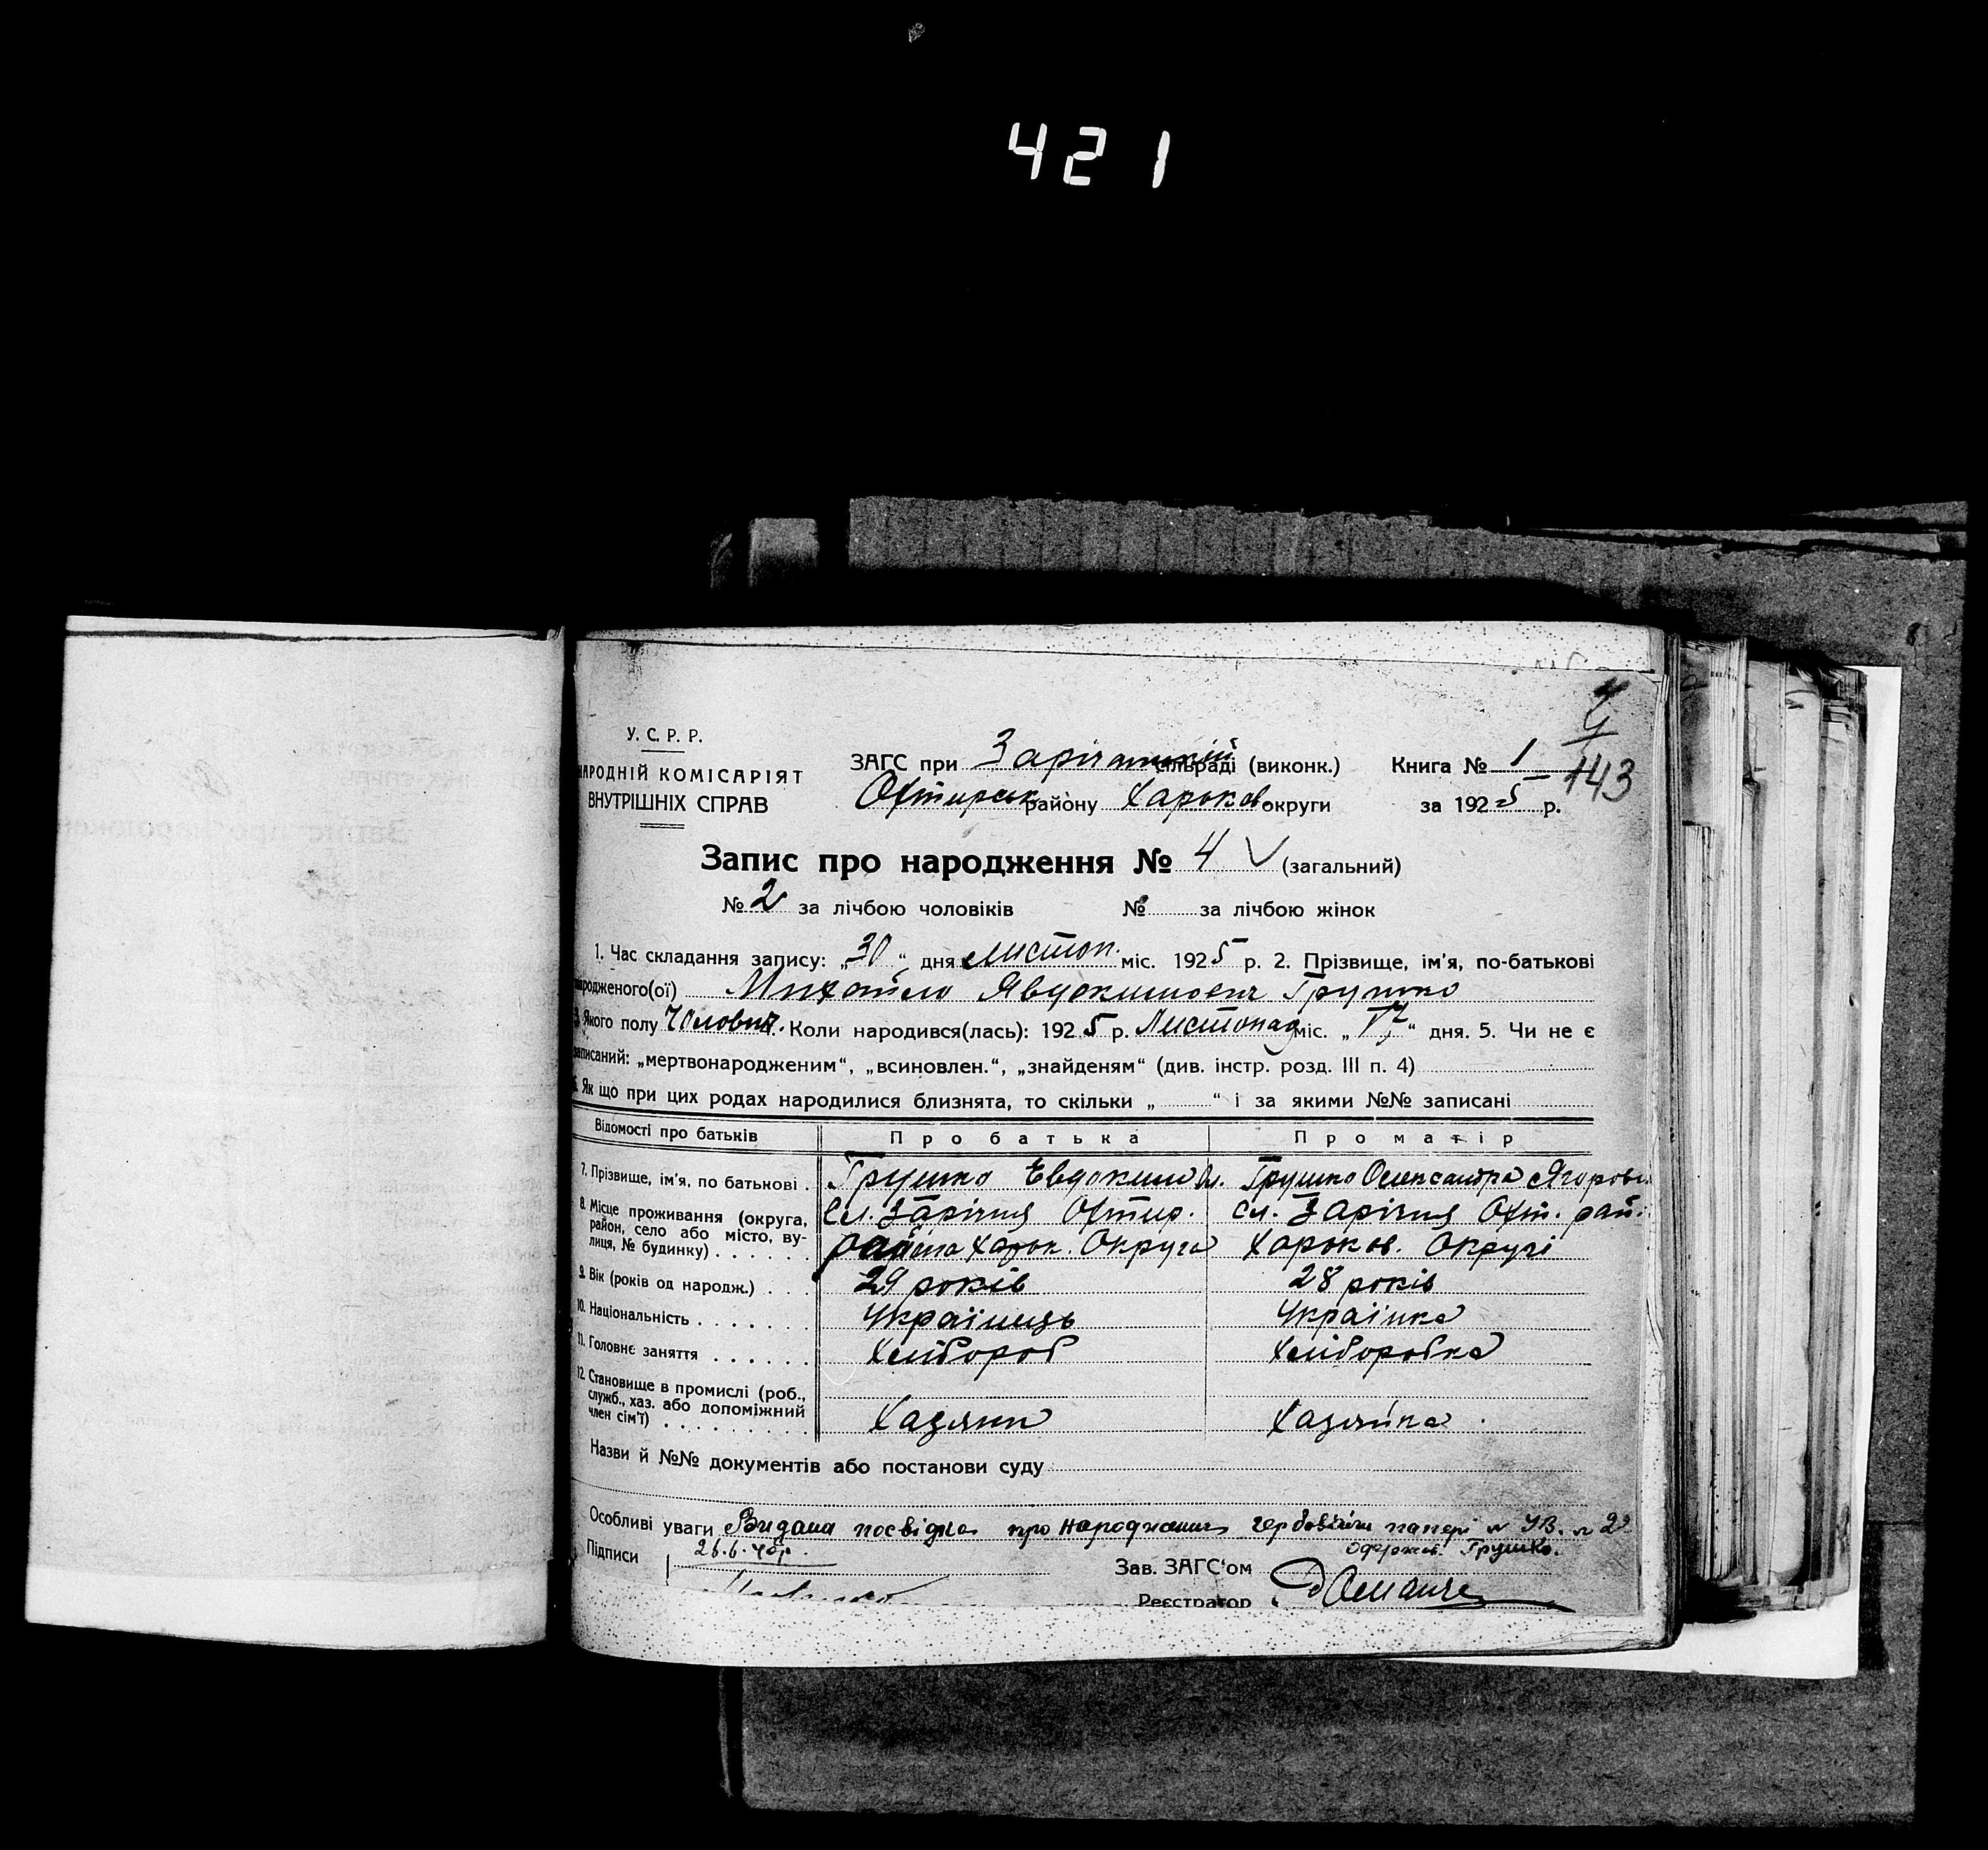 421
У. С. Р. Р.
НАРОДНІЙ КОМІСАРІЯТ
ВНУТРІШНІХ СПРАВ
ЗАГС при Зарічанській сільраді (виконк.) Книга № 1
143
Охтирськ. району Харьков. округи за 1925 р.
Запис про народження № 4 (загальний)
№ 2 за лічбою чоловіків № за лічбою жінок
1. Час складання запису: „30“ дня листоп. міс. 1925 р. 2. Прізвище, ім'я, по-батькові
народженого(ої) Михайло Явдокимович Грушко
Якого полу Чоловіч. Коли народився(лась): 1925 р. Листопад міс. „17“ дня. 5. Чи не є
записаний: „мертвонародженим“, „всиновлен.“, „знайденям“ (див. інстр. розд. III п. 4)
Як що при цих родах народилися близнята, то скільки „ “ і за якими №№ записані
Відомості про батьків Про батька Про матір
7. Прізвище, ім'я, по батькові . Грушко Евдоким Грушко Олександра Ягоровн
8. Місце проживання (округа, район, село або місто, вулиця, № будинку) Сл. Зарічня Охтир. Сл. Зарічня Охт. рай.
района Харьк. Округи Харьков. Округі
9. Вік (років од народж.) 29 років 28 років
10. Національність Українець Українка
11. Головне заняття Хлібороб Хліборобка
12. Становище в промислі (роб., служб., хаз. або допоміжний член сім'ї) Хазяин Хазяйка
Назви й №№ документів або постанови суду
Особливі уваги Видана посвідка про народження гербовім папері № УВ. № 22
26.6.40р. Одержав. Грушко.
Підписи Зав. ЗАГС'ом
Реєстратор